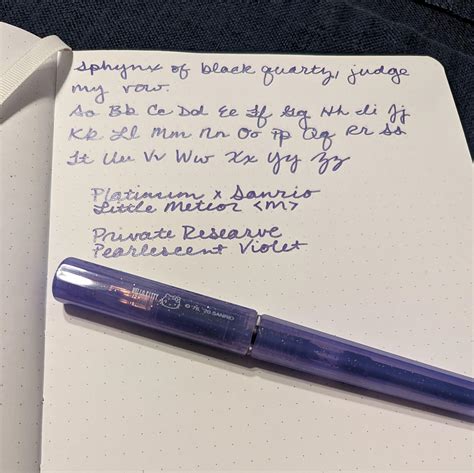 sphynx of black quartz, judge
my vow.
Aa Bb Cc Dd Ee Ff Gg Hh Ii Jj
Kk Ll Mm Nn Oo Pp Qq Rr Ss
Tt Uu Vv Ww Xx Yy Zz
Platinum x Sanrio
Little Meteor <M>
Private Reserve
Pearlescent Violet
© '76, '20 SANRIO